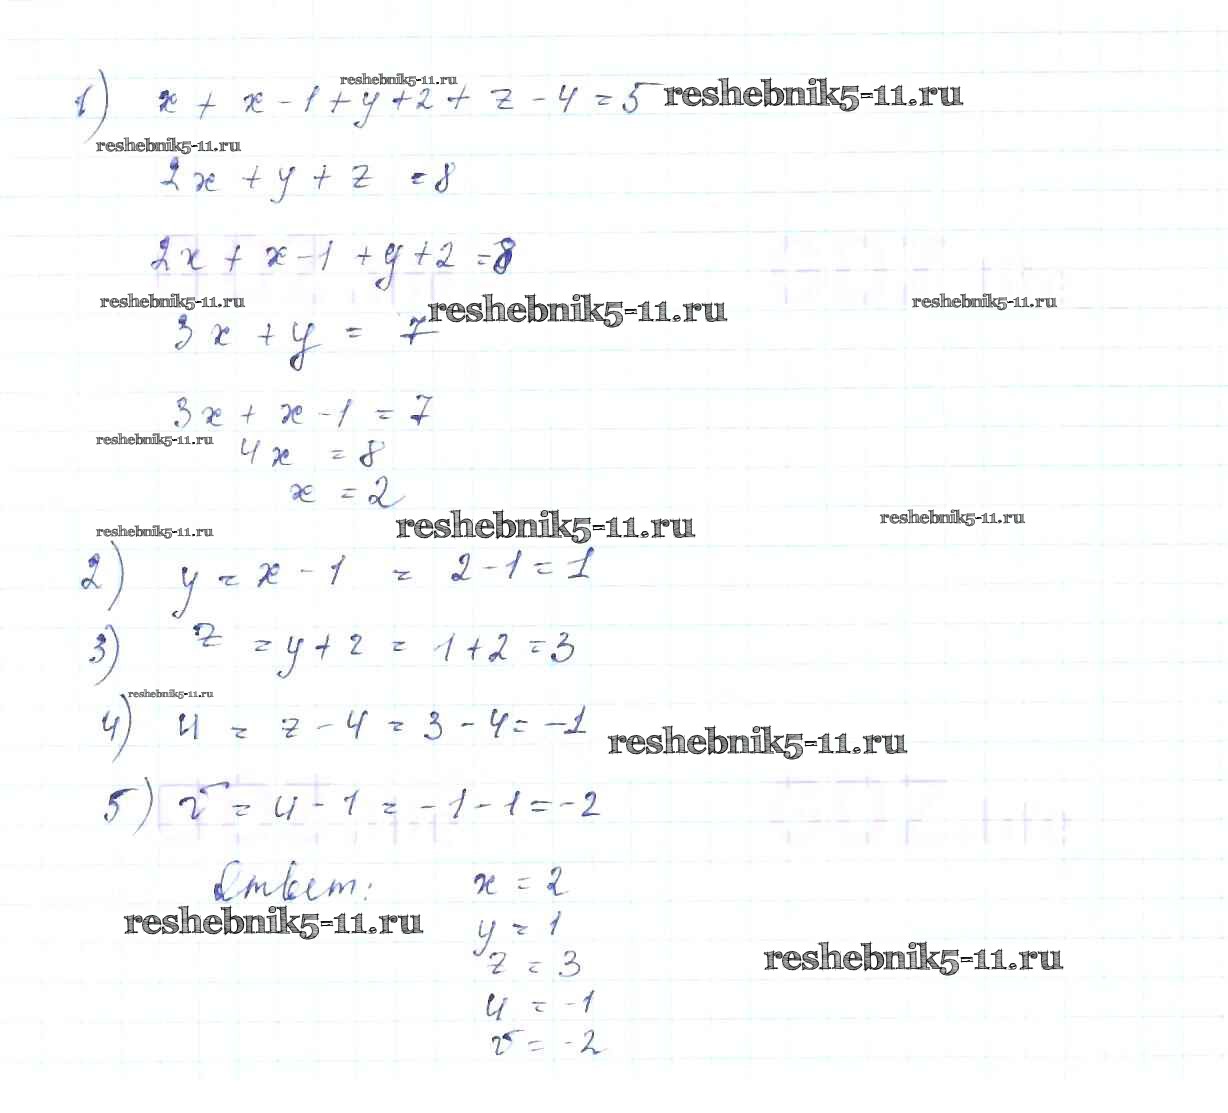 reshebnik5-11.ru
1) x + x - 1 + y + 2 + z - 4 = 5 reshebnik5-11.ru
reshebnik5-11.ru
2x + y + z = 8
2x + x - 1 + y + 2 = 8
reshebnik5-11.ru reshebnik5-11.ru reshebnik5-11.ru
3x + y = 7
3x + x - 1 = 7
reshebnik5-11.ru
4x = 8
x = 2
reshebnik5-11.ru reshebnik5-11.ru reshebnik5-11.ru
2) y = x - 1 = 2 - 1 = 1
3) z = y + 2 = 1 + 2 = 3
reshebnik5-11.ru
4) u = z - 4 = 3 - 4 = -1
reshebnik5-11.ru
5) v = u - 1 = -1 - 1 = -2
Ответ: x = 2
reshebnik5-11.ru y = 1
z = 3 reshebnik5-11.ru
u = -1
v = -2